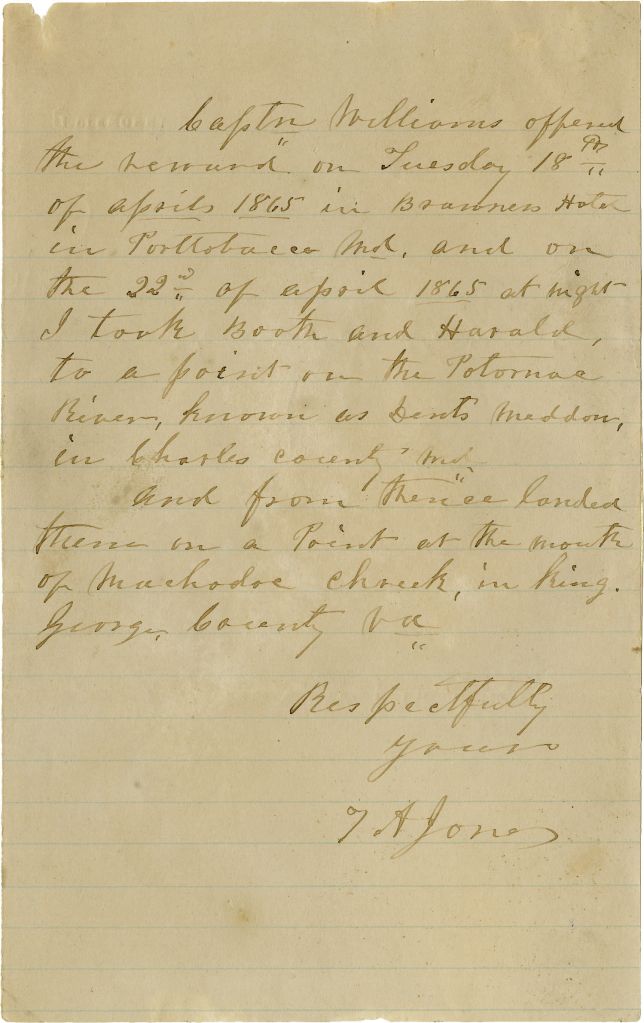 Captn Williams offered
the reward on Tuesday 18th
of april 1865 in Branners Hotel
in Porttobacco Md. and on
the 22nd of april 1865 at night
I took Booth and Harald,
to a point on the Potomac
River, known as Dents Meddow,
in Charles county Md
and from thence landed
them on a Point at the mouth
of Machodoc Chreek, in King.
George, County Va
Respectfully
Yours
T A Jones